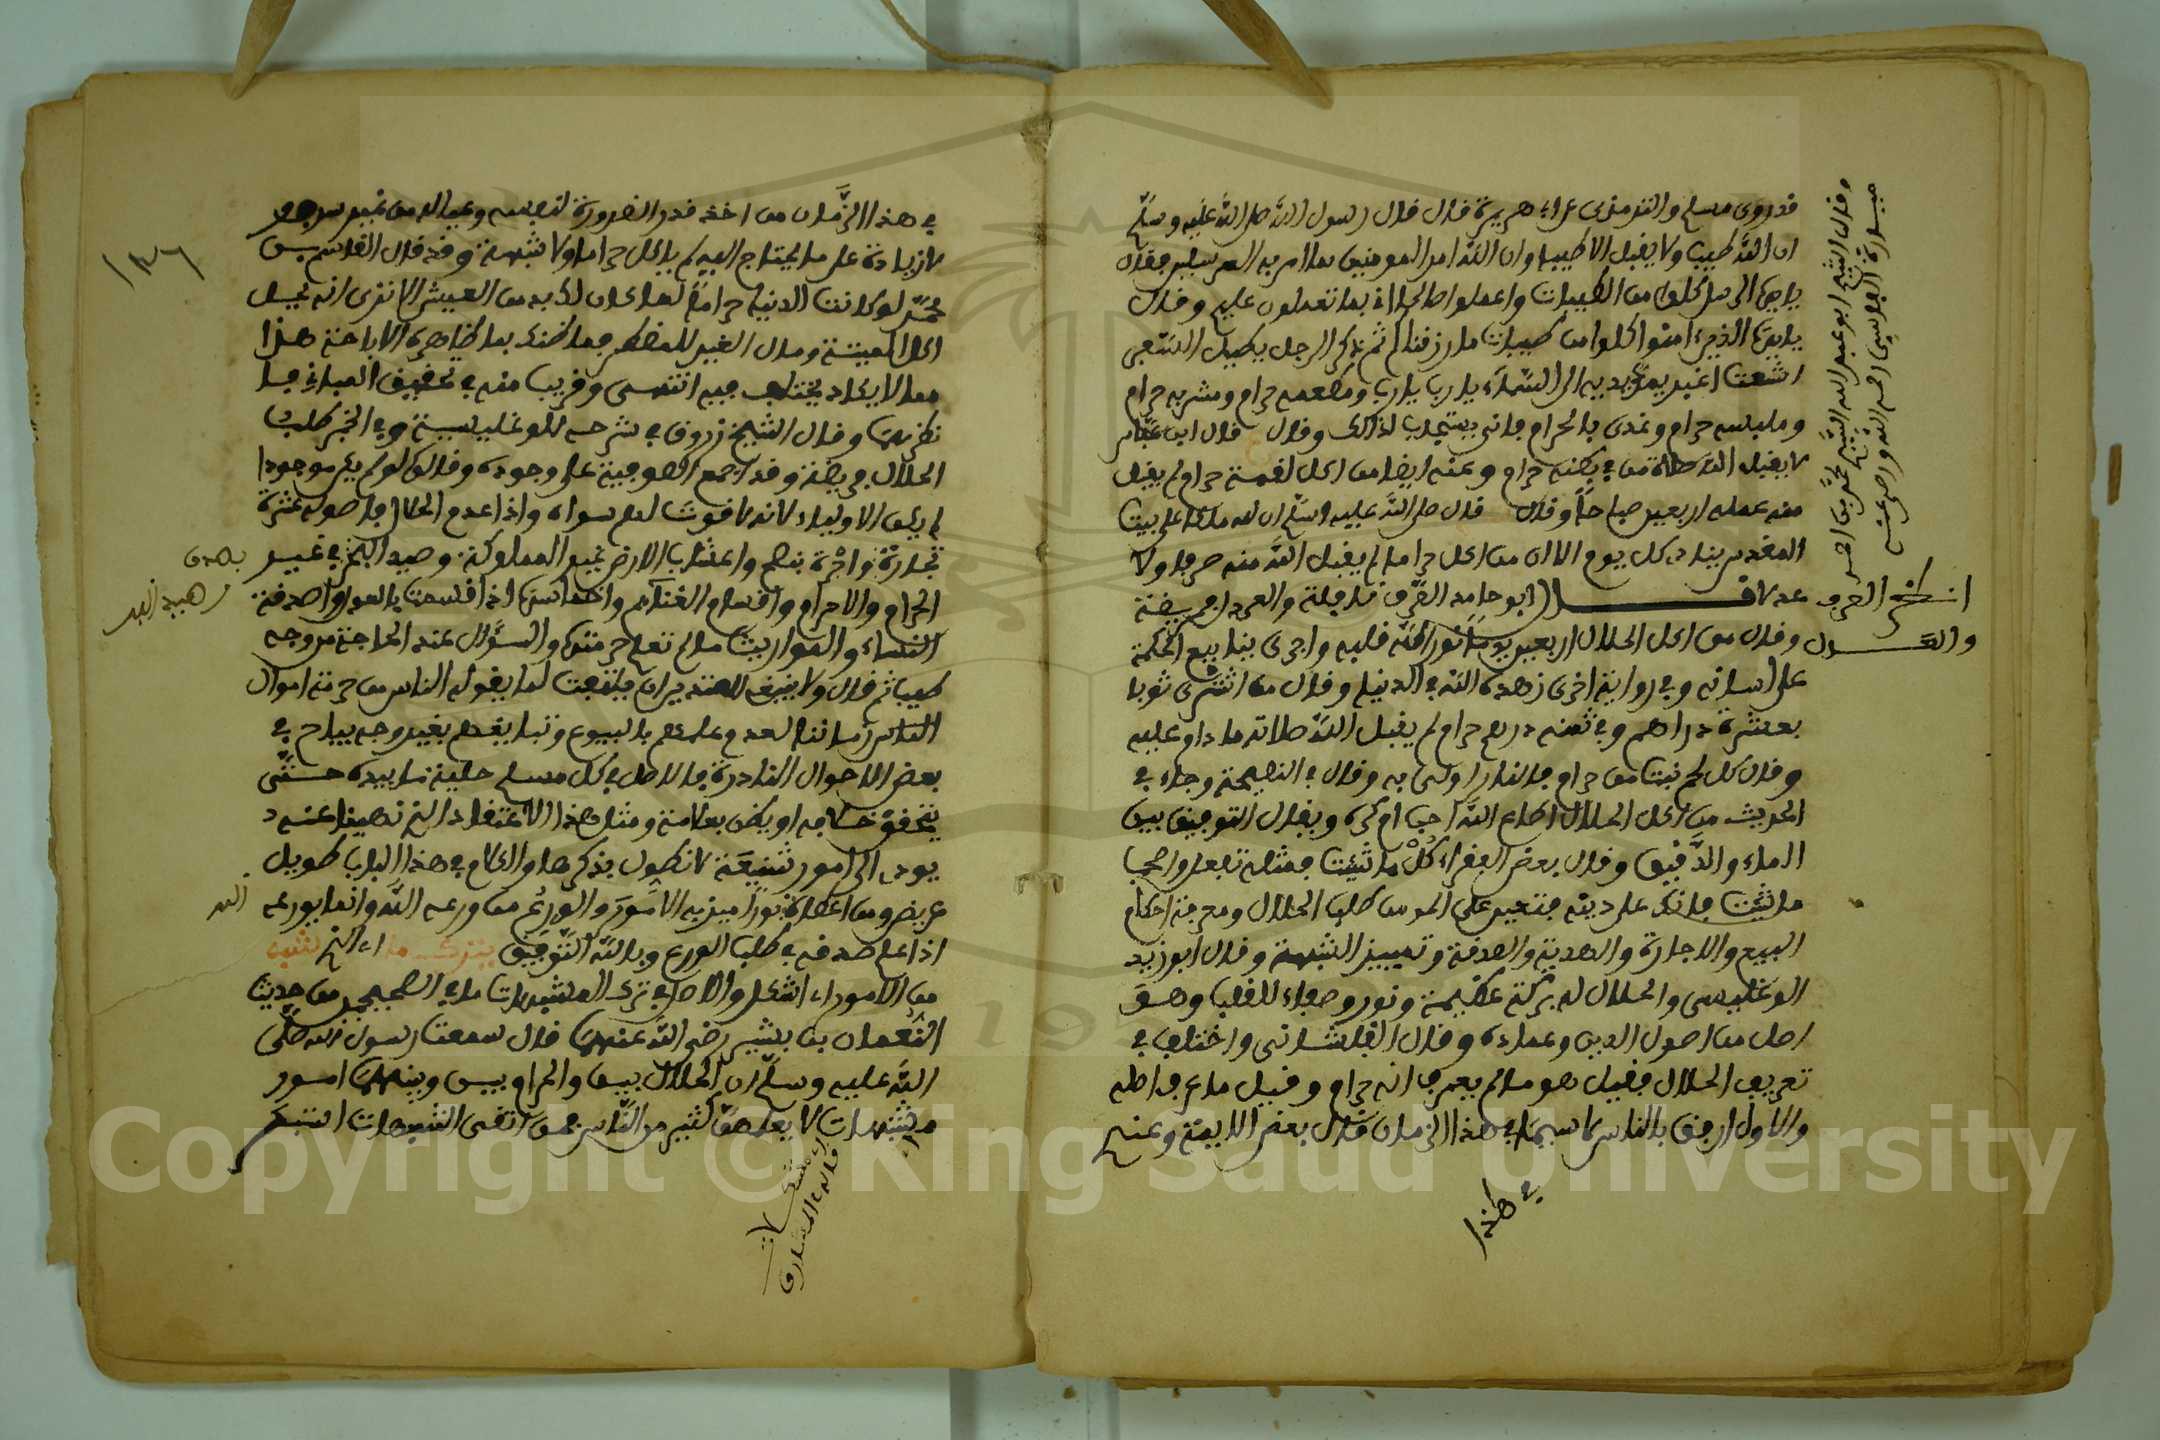 قد روى مسلم والترمذي عن ابي هريرة قال قال رسول الله صلى الله عليه وسلم
ان الله طيب ولا يقبل الا طيبا وان الله امر المومنين بما امر به المرسلين فقال
يايها الرسل كلوا من الطيبات واعملوا صالحا اني بما تعملون عليم وقال
يايها الذين امنوا كلوا من طيبات ما رزقناكم ثم ذكر الرجل يطيل السفر
اشعث اغبر يمد يديه الى السماء يا رب يا رب ومطعمه حرام ومشربه حرام
وملبسه حرام وغذي بالحرام فاني يستجاب لذلك وقال قال ابن عباس
لا يقبل الله صلاة من في بطنه حرام وعنه ايضا من اكل لقمة حرام لم يقبل
منه عمله اربعين صباحا وقال قال صلى الله عليه وسلم ان لله ملكا على بيت
المقدس ينادي كل يوم الا ان من اكل حراما لم يقبل الله منه صرفا ولا
عدلا قال ابو حامد الصرف نافلة والعدل فريضة
وقال من اكل الحلال اربعين يوما نور الله قلبه واجرى ينابيع الحكمة
على لسانه وفي رواية اخرى زهده الله في الدنيا وقال من اشترى ثوبا
بعشرة دراهم وفي ثمنه درهم حرام لم يقبل الله صلاته ما دام عليه
وقال كل لحم نبت من حرام فالنار اولى به وقال في النصيحة وجاء في
الحديث من اكل الحلال اطاع الله احب ام كره ويقال التوفيق بين
الماء والدقيق وقال بعض الفقراء كل ما شئت فمثله تفعل واصحب
ما شئت فانك على دينه فتعين على المومن طلب الحلال ومعرفة احكام
البيع والاجارة والهدية والصدقة وتمييز الشبهة وقال ابو زيد
الوغليسي والحلال له بركة عظيمة ونور وصفاء للقلب وهو
اصل من اصول الدين وعماده وقال القلشاني واختلف في
تعريف الحلال فقيل هو ما لم يعرف انه حرام وقيل ما عرف اصله
والاول ارفق بالناس لا سيما في هذا الزمان قال بعض الايمة وعندي
في هذا
وقال الشيخ ابو عبد الله السيد محمد بن احمد
ميارة الفاسي رحمه الله ورضي عنه
انظر الصرف
والعدل
في هذا الزمان من اخذ قدر الضرورة لنفسه وعياله من غير سرف
لا زيادة على ما يحتاج اليه لم ياكل حراما ولا شبهة وقد قال القاسم بن
محمد لو كانت الدنيا حراما لما كان لك بد من العيش الا ترى انه يحل
اكل الميتة ومال الغير للمضطر فما ظنك بما ظاهره الاباحة هذا
مما لا يكاد يختلف فيه انتهى وقريب منه في تحقيق المباني فيا
نظرهما وقال الشيخ زروق في شرحه للوغليسية وفي الخبر طلب
الحلال فريضة وقد اجمع الصوفية على وجوده وقالوا لو لم يكن موجودا
لم ياكل الاولياء لانه لا قوت لهم سواه واذا عدم الحلال فاصوله عشرة
تجارة واجرة بنصح واعشاب الارض غير المملوكة وصيد البحر في غير
الحرام والاحرام واقسام الغنائم واخماسها اذا قسمت بالعدل واصدقة
النساء والمواريث ما لم تعلم حرمتها والسؤال عند الحاجة من وجه
طيب ثم قال ولا ينبغي للمتدين ان يلتفت لما يقوله الناس من حرمة اموال
الناس زماننا لعدم علمهم بالبيوع وتبايعهم بغير وجه يباح في
بعض الاحوال النادرة فالاصل في كل مسلم حلية ما بيده حتى
يتحقق خلافه او يظن بعلامة ومثل هذا الاعتقاد الذي نهينا عنه
يودي الى امور شنيعة لا نطول بذكرها والكلام في هذا الباب طويل
عريض ومن اعطاه نورا ميز به الامور والورع من ورعه الله وانما يورعه
اذا علم صدقه في طلب الورع وبالله التوفيق بترك ما اي الذي شبه
من الامور اي اشكل والاصل في ترك المشبهات ما في الصحيحين من حديث
النعمان بن بشير رضي الله عنهما قال سمعت رسول الله صلى
الله عليه وسلم ان الحلال بين والحرام بين وبينهما امور
مشتبهات لا يعلمهن كثير من الناس فمن اتقى الشبهات استبرأ
قاله في المشارق
١٣٦
Copyright © King Saud University
1957